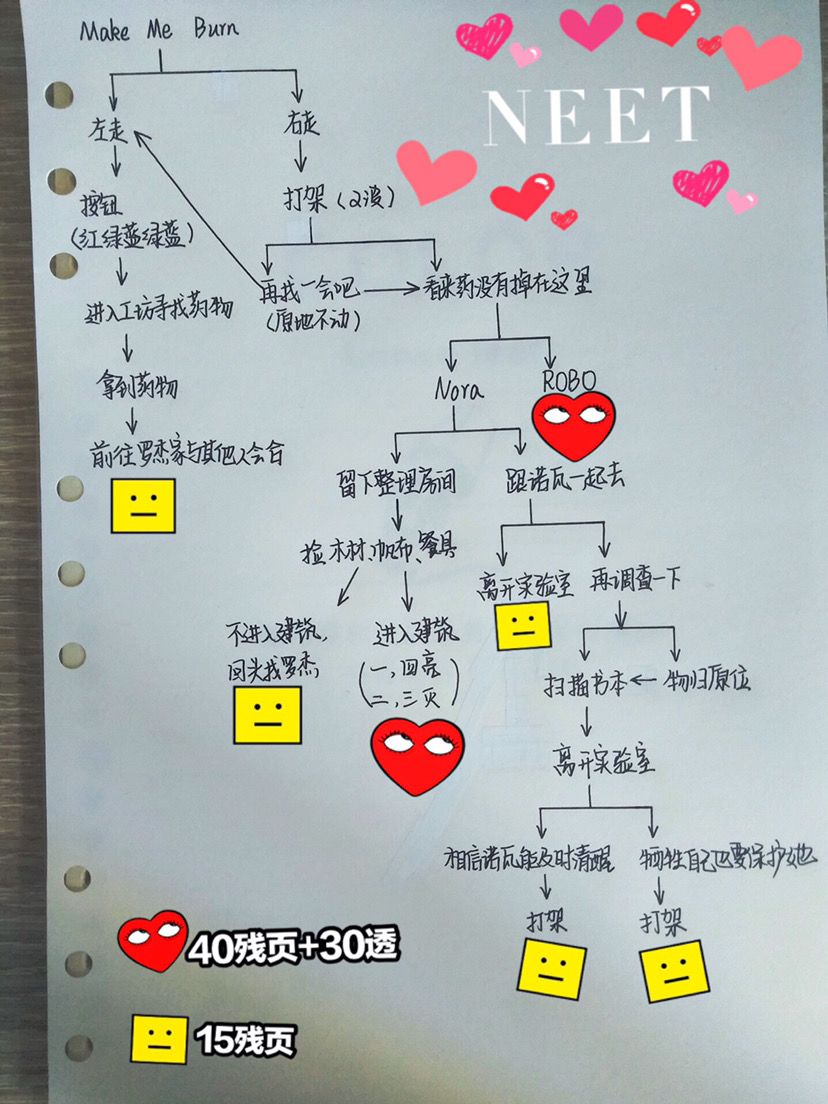 Make Me Burn
NEET
左走
右走
按钮
(红绿蓝绿蓝)
打架(2波)
进入工坊寻找药物
再找一会吧
(原地不动)
看来药没有掉在这里
拿到药物
Nora
ROBO
前往罗杰家与其他人会合
留下整理房间
跟诺瓦一起去
捡木材、帆布、餐具
离开实验室
再调查一下
不进入建筑,
回头找罗杰
进入建筑
(一,四亮
二,三灭)
扫描书本
物归原位
离开实验室
相信诺瓦能及时清醒
牺牲自己也要保护她
打架
打架
40残页+30透
15残页